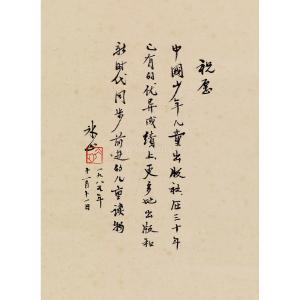 祝愿
中國少年儿童出版社在三十年
已有的优异成绩上,更多地出版和
新时代同步前进的儿童读物
冰心
十一月十一日